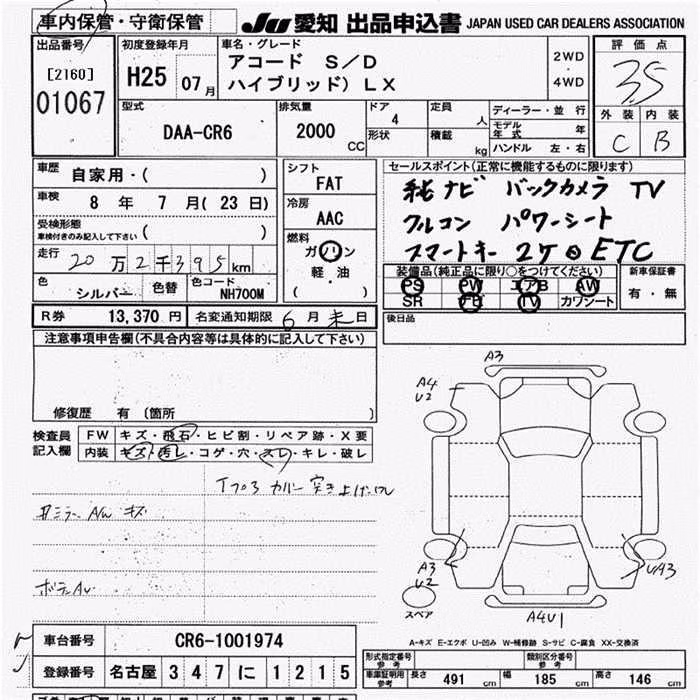 車内保管・守衛保管 JU 愛知 出品申込書 JAPAN USED CAR DEALERS ASSOCIATION
出品番号 初度登録年月 車名・グレード 評価点
[2160] H25 07月 アコード S/D 2WD・4WD 3.5
01067 ハイブリッド) LX
外装 内装
C B
型式 DAA-CR6 排気量 2000 CC ドア 4 定員 人 ディーラー・並行
形状 積載 kg モデル年式 年
ハンドル 左・右
車歴 自家用・( ) シフト FAT セールスポイント(正常に機能するものに限ります)
車検 8年 7月(23日) 冷房 AAC 純ナビ バックカメラ TV
受検形態 車検付きのみ記入して下さい ( ) クルコン パワーシート
走行 20万2千395km 燃料 ガソリン 軽・油 ( ) スマートキー 2ケ ETC
色 シルバー 色替 色コード NH700M
装備品(純正品に限り○をつけてください) 新車保証書
PS PW エアB AW 有・無
SR TV カワシート
R券 13,370円 名変通知期限 6月末日 後日品
注意事項申告欄(不具合内容等は具体的に記入して下さい)
修復歴 有 〔箇所 〕
検査員記入欄 FW キズ・飛石・ヒビ割・リペア跡・X要
内装 キズ・汚レ・コゲ・穴・スレ・キレ・破レ
カバー 突き上げ
ミラー A/W キズ
A3
A4
U2
A3
U2
UA3
A4U1
スペア
A-キズ E-エクボ U-凹み W-補修跡 S-サビ C-腐食 XX-交換済
車台番号 CR6-1001974
型式指定番号 参考 類別区分番号 参考
登録番号 名古屋 347 に 1215
車庫証明用参考 長さ 491 cm 幅 185 cm 高さ 146 cm